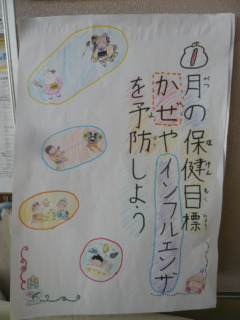 1月の保健目標
かぜやインフルエンザ
を予防しよう